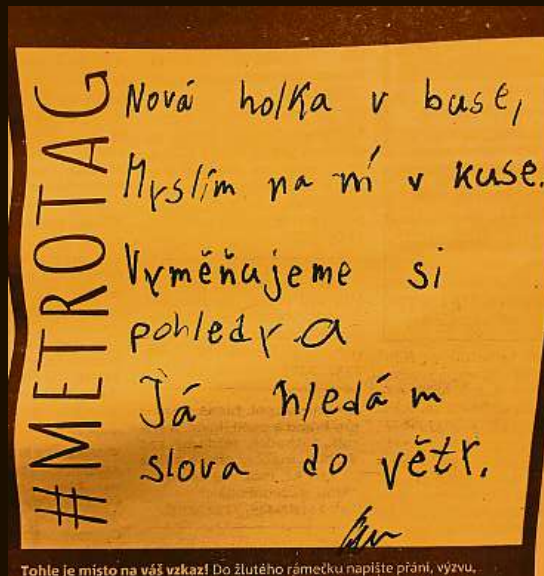 #METROTAG
Nová holka v buse,
Myslím na ní v kuse.
Vyměňujeme si
pohledy a
Já hledám
slova do větr.
Tohle je místo na váš vzkaz! Do žlutého rámečku napište přání, výzvu,